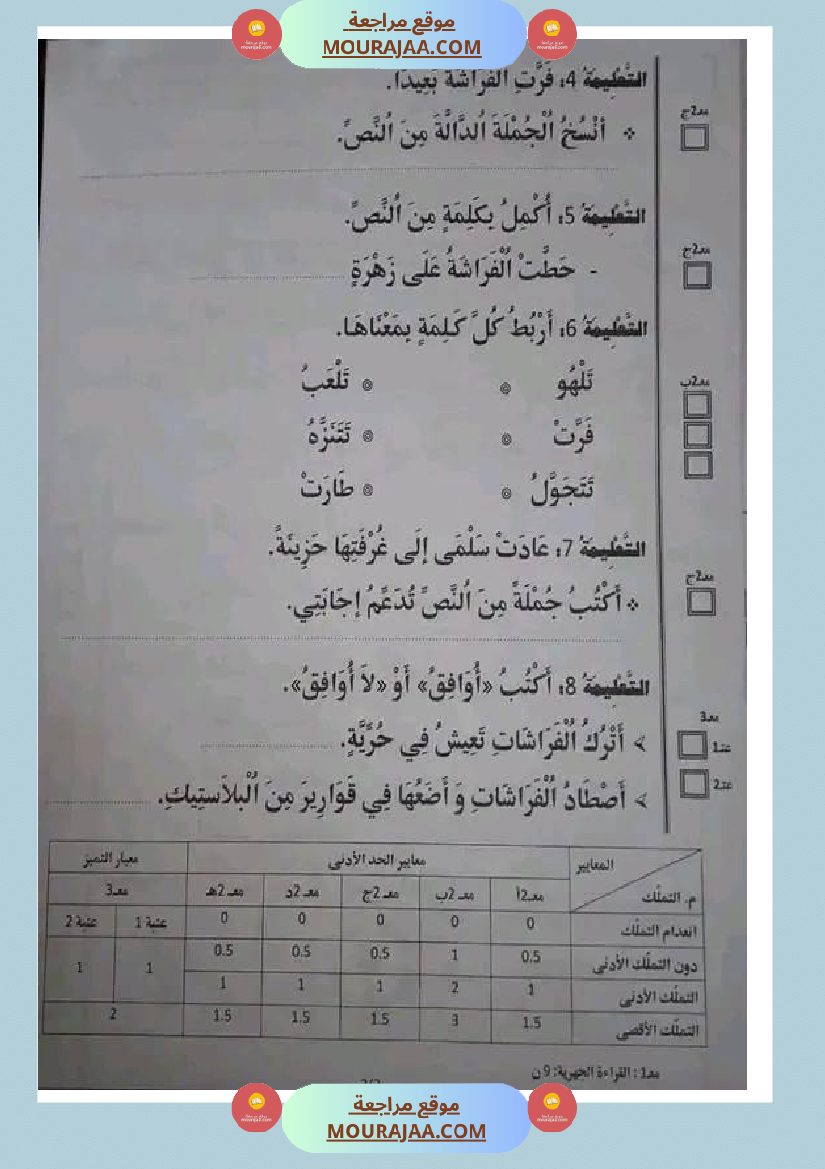 موقع مراجعة
MOURAJAA.COM
التَّعْلِيمَةُ 4: فَرَّتِ الْفَرَاشَةُ بَعِيدًا.
مع2ج
❖ أَنْسُخُ اُلْجُمْلَةَ اُلدَّالَّةَ مِنَ اُلنَّصِّ.
التَّعْلِيمَةُ 5: أُكْمِلُ بِكَلِمَةٍ مِنَ اُلنَّصِّ.
مع2ج
- حَطَّتْ اُلْفَرَاشَةُ عَلَى زَهْرَةٍ
التَّعْلِيمَةُ 6: أَرْبُطُ كُلَّ كَلِمَةٍ بِمَعْنَاهَا.
مع2ب
تَلْهُو تَلْعَبُ
فَرَّتْ تَتَنَزَّهُ
تَتَجَوَّلُ طَارَتْ
التَّعْلِيمَةُ 7: عَادَتْ سَلْمَى إِلَى غُرْفَتِهَا حَزِينَةً.
مع2ج
❖ أَكْتُبُ جُمْلَةً مِنَ اُلنَّصِّ تُدَعِّمُ إِجَابَتِي.
التَّعْلِيمَةُ 8: أَكْتُبُ «أُوَافِقُ» أَوْ «لاَ أُوَافِقُ».
مع3
➢ أَتْرُكُ اُلْفَرَاشَاتِ تَعِيشُ فِي حُرِّيَّةٍ.
عتـ1
➢ أَصْطَادُ اُلْفَرَاشَاتِ وَ أَضَعُهَا فِي قَوَارِيرَ مِنَ اُلْبلاَستِيكِ.
عتـ2
المعايير معايير الحد الأدنى معيار التميز
م. التملّك مع2أ مع2ب مع2ج مع2د مع2هـ مع3
انعدام التملّك 0 0 0 0 0 عتبة 1 عتبة 2
دون التملّك الأدنى 0.5 1 0.5 0.5 0.5 1 1
التملّك الأدنى 1 2 1 1 1
التملّك الأقصى 1.5 3 1.5 1.5 1.5 2
مع1: القراءة الجهرية: 9 ن
موقع مراجعة
MOURAJAA.COM